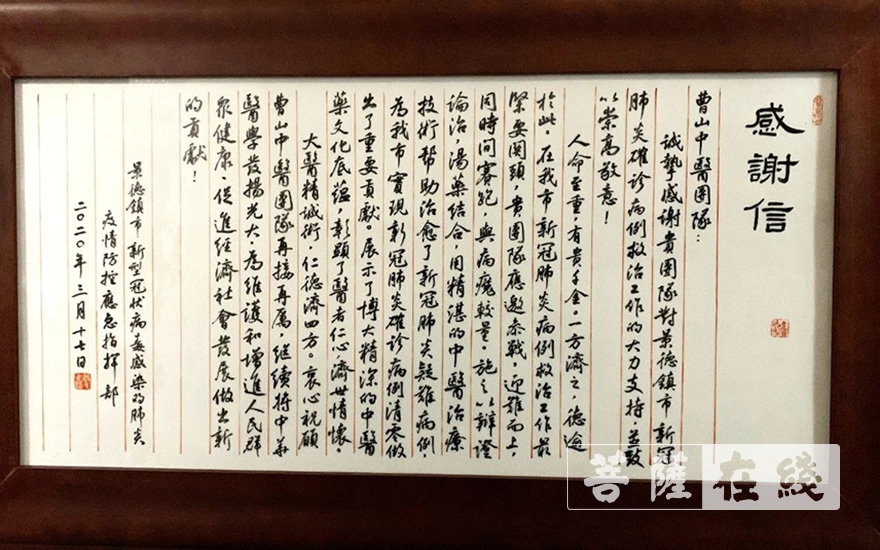 感謝信
曹山中醫團隊：
誠摯感謝貴團隊對景德鎮市新冠
肺炎確診病例救治工作的大力支持，並致
以崇高敬意！
人命至重有貴千金。一方濟之，德逾
於此。在我市新冠肺炎病例救治工作最
緊要関頭，貴團隊應邀参戰，迎難而上，
同時间賽跑，與病魔較量。施之以辯證
論治，湯藥結合，用精湛的中醫治療
技術帮助治愈了新冠肺炎疑難病例，
為我市實現新冠肺炎確診病例清零做
出了重要貢獻。展示了博大精深的中醫
藥文化底蕴，彰顯了醫者仁心濟世情懷。
大醫精誠術，仁德濟四方。衷心祝願
曹山中醫團隊再接再厲，继續将中華
醫學發揚光大，為維護和增進人民群
眾健康、促進經濟社會發展做出新
的貢獻！
景德鎮市新型冠状病毒感染的肺炎
疫情防控應急指揮部
二〇二〇年三月十七日
菩薩在綫